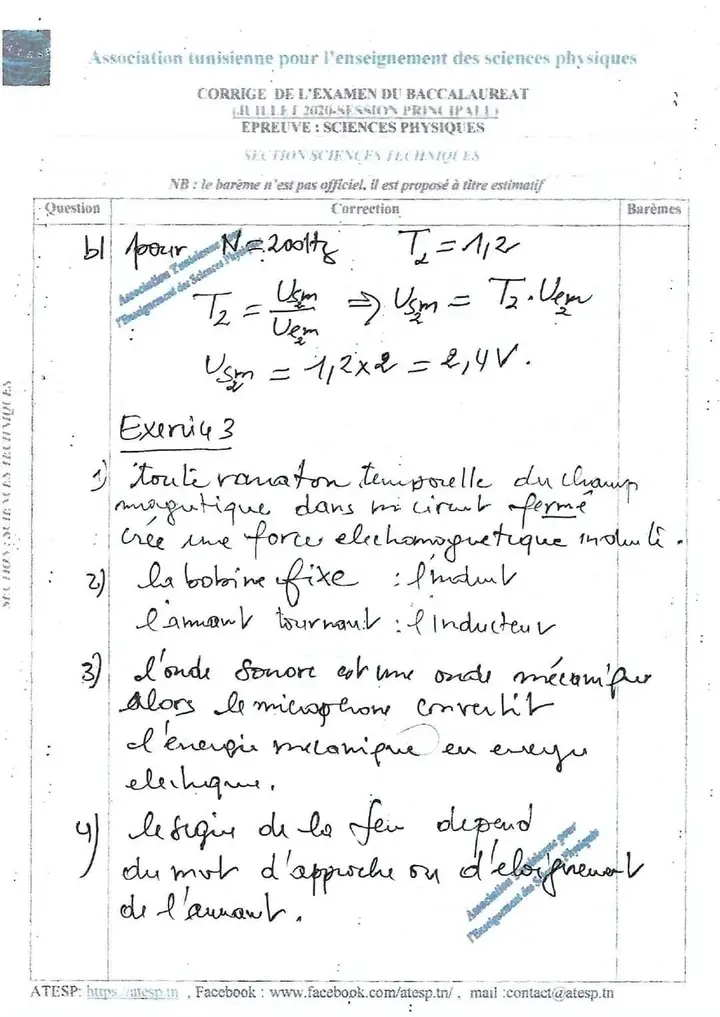 ATESP
Association tunisienne pour l'enseignement des sciences physiques
CORRIGE DE L'EXAMEN DU BACCALAUREAT
(JUILLET 2020-SESSION PRINCIPALE)
EPREUVE : SCIENCES PHYSIQUES
SECTION SCIENCES TECHNIQUES
NB : le barème n'est pas officiel, il est proposé à titre estimatif
Question Correction Barèmes
b) pour N = 200Hz T₂ = 1,2
Association Tunisienne pour
l'Enseignement des Sciences Physiques
T₂ = Usm₂ / Uem₂ ⇒ Usm₂ = T₂ . Uem₂
Usm₂ = 1,2 x 2 = 2,4 V .
Exercice 3
1) toute variation temporelle du champ
magnétique dans un circuit fermé
crée une force electromagnetique induite .
2) la bobine fixe : l'induit
l'aimant tournant : l'inducteur
3) l'onde sonore est une onde mécanique
Alors le microphone convertit
l'énergie mécanique en energie
electrique .
4) le signe de la fem depend
du mvt d'approche ou d'eloignement
de l'aimant .
Association Tunisienne pour
l'Enseignement des Sciences Physiques
SECTION : SCIENCES TECHNIQUES
ATESP: https://atesp.tn , Facebook : www.facebook.com/atesp.tn/ , mail :contact@atesp.tn